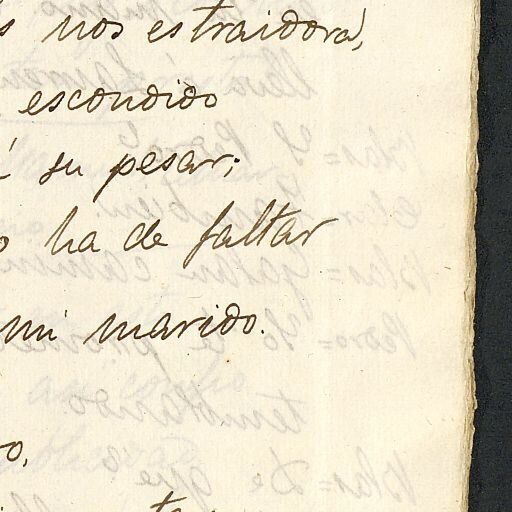 nos es traidora,
escondido
su pesar;
ha de faltar
mi marido.